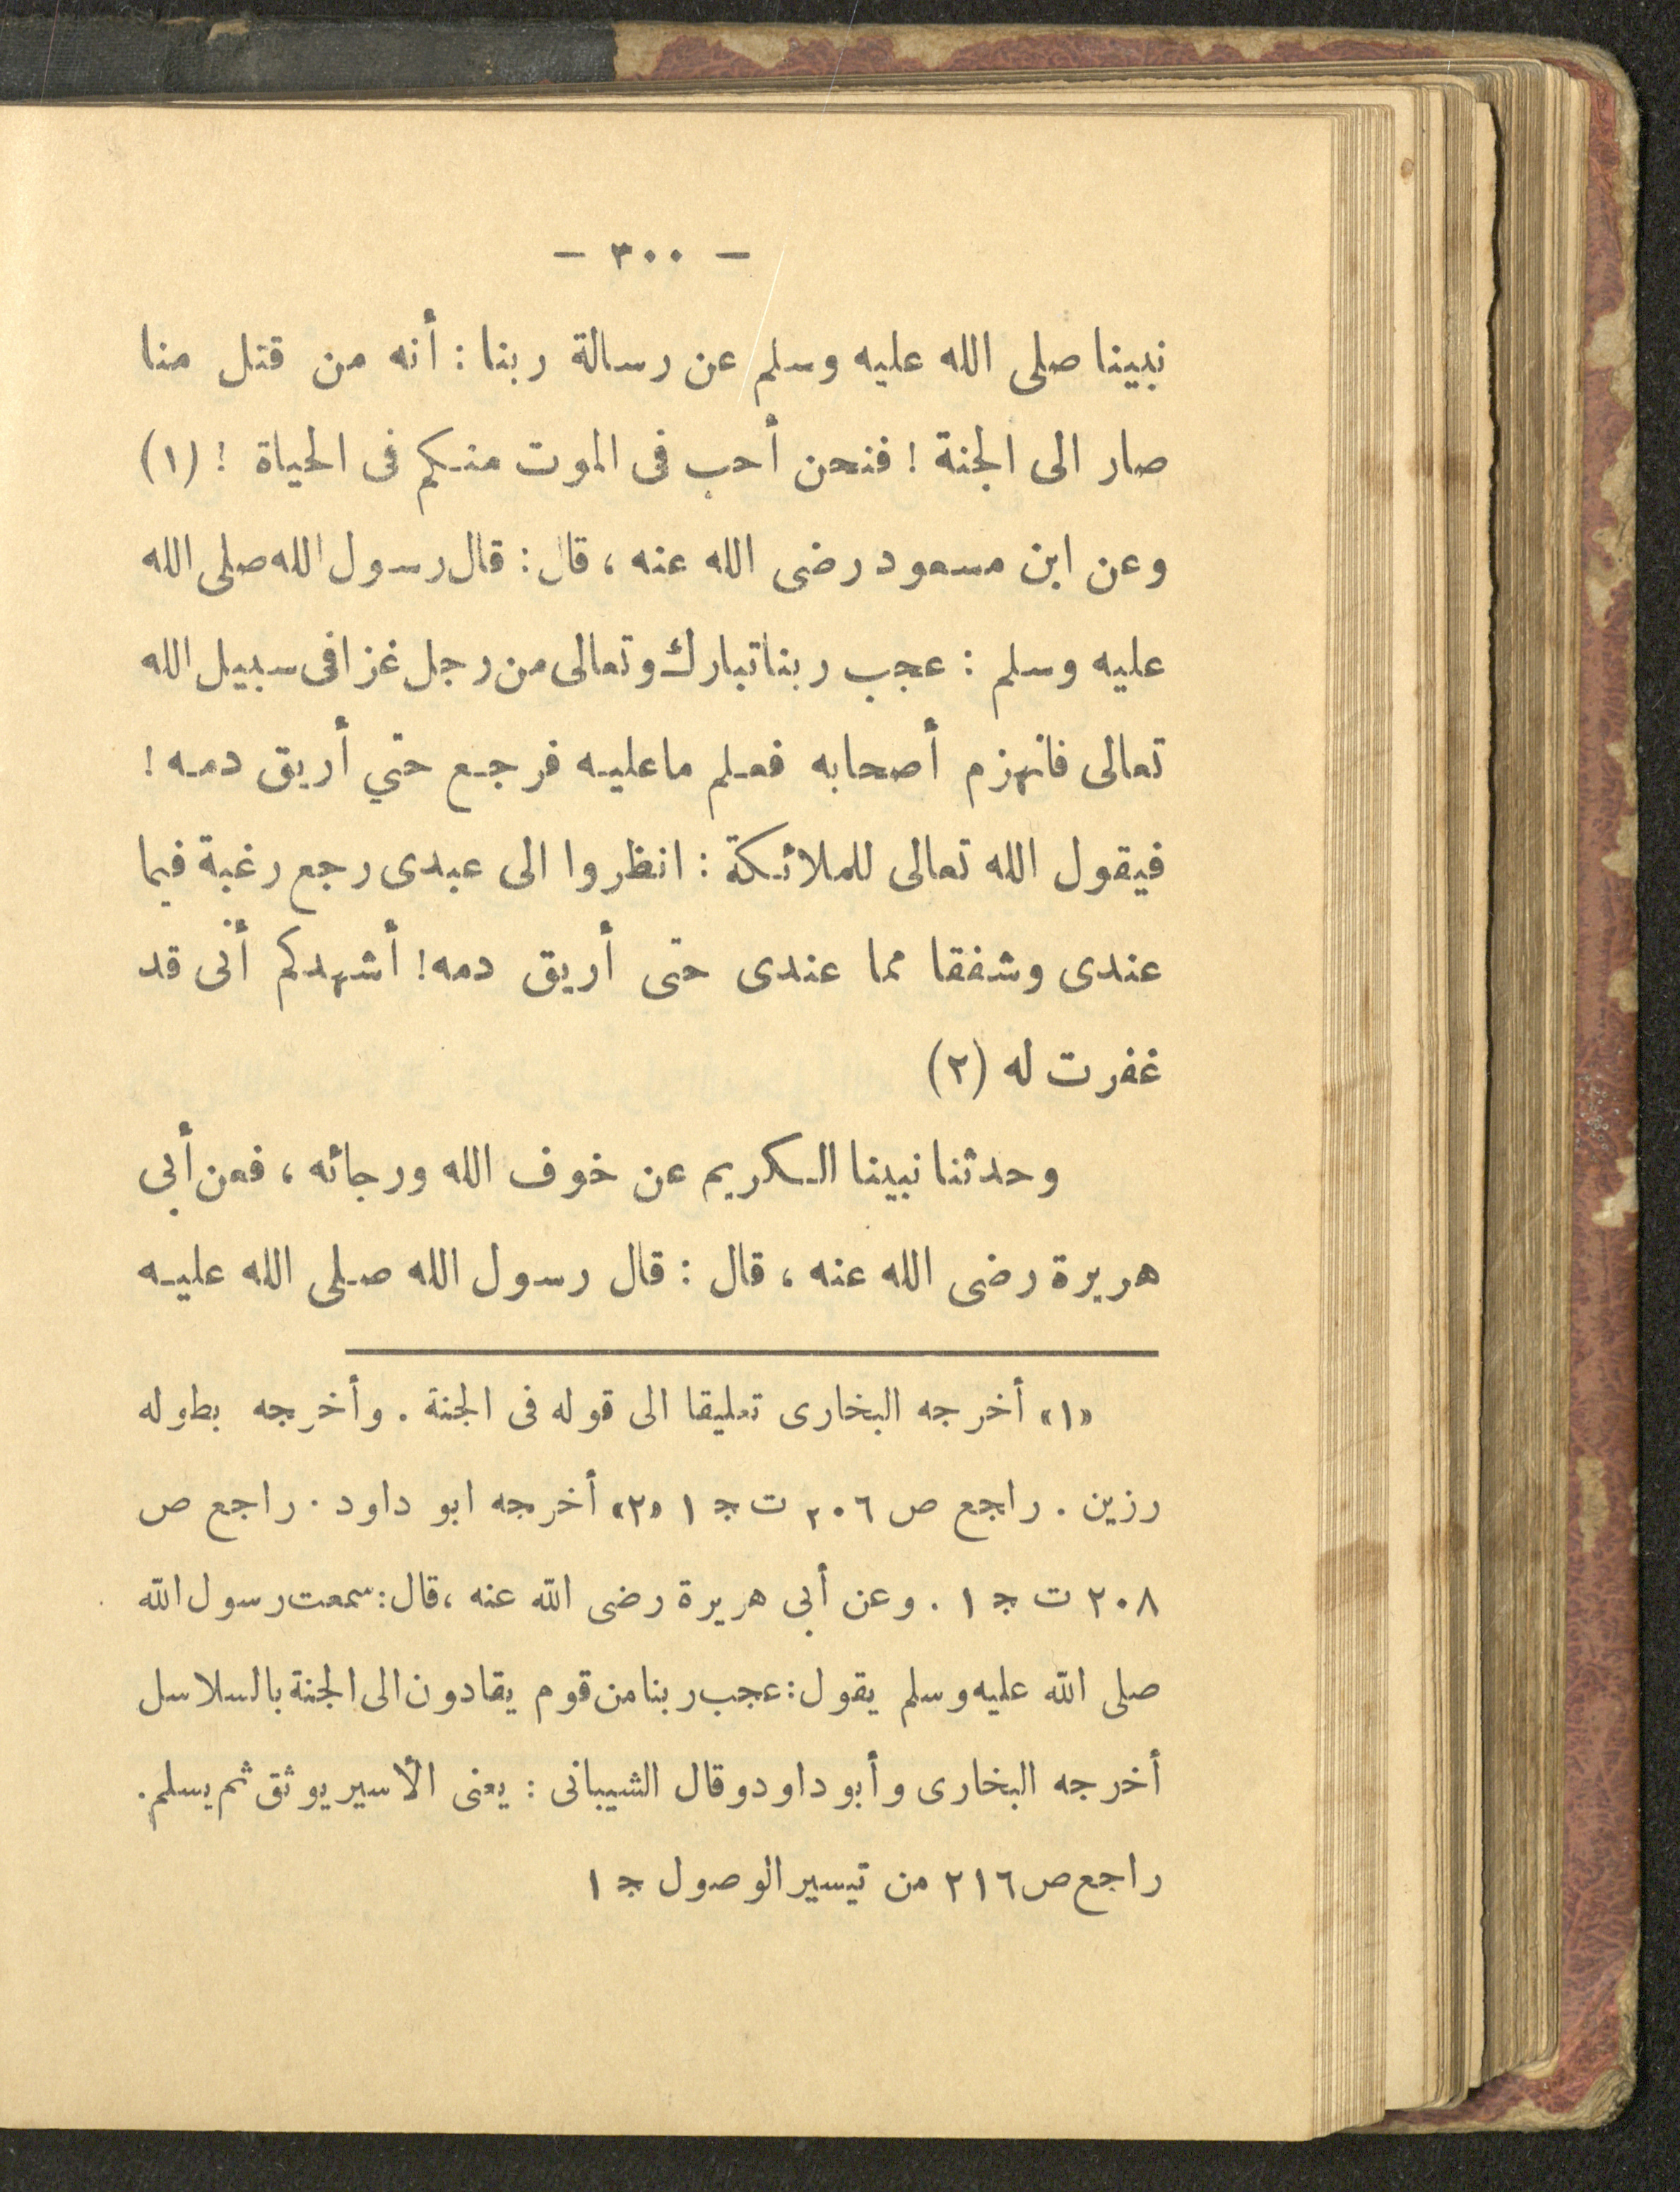 — ٣٠٠ —
نبينا صلى الله عليه وسلم عن رسالة ربنا : أنه من قتل منا
صار الى الجنة ! فنحن أحب فى الموت منكم فى الحياة ! (١)
وعن ابن مسعود رضى الله عنه ، قال : قال رسول الله صلى الله
عليه وسلم : عجب ربنا تبارك وتعالى من رجل غزا فى سبيل الله
تعالى فانهزم أصحابه فعلم ما عليه فرجع حتي أريق دمه !
فيقول الله تعالى للملائكة : انظروا الى عبدى رجع رغبة فيما
عندى وشفقا مما عندى حتى أريق دمه ! أشهدكم أنى قد
غفرت له (٢)
وحدثنا نبينا الكريم عن خوف الله ورجائه ، فعن أبى
هريرة رضى الله عنه ، قال : قال رسول الله صلى الله عليه
«١» أخرجه البخارى تعليقا الى قوله فى الجنة . وأخرجه بطوله
رزين . راجع ص ٢٠٦ ت ج ١ «٢» أخرجه ابو داود . راجع ص
٢٠٨ ت ج ١ . وعن أبى هريرة رضى الله عنه ، قال : سمعت رسول الله
صلى الله عليه وسلم يقول : عجب ربنا من قوم يقادون الى الجنة بالسلاسل
أخرجه البخارى وأبو داود وقال الشيبانى : يعنى الأسير يوثق ثم يسلم .
راجع ص ٢١٦ من تيسير الوصول ج ١